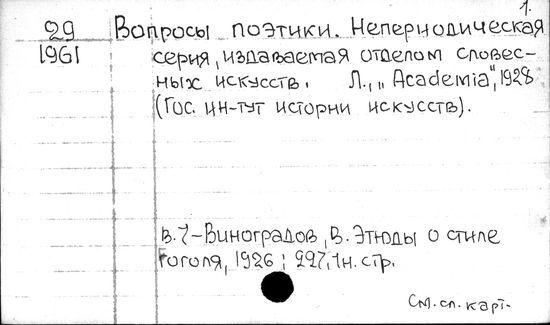 1.
29 Вопросы поэтики. Непериодическая
1961 серия, издаваемая отделом словес-
ных искусств. Л., „Academia", 1928
(Гос. ин-тут истории искусств).
в. 7-Виноградов, В. Этюды о стиле
Гоголя, 1926; 227, 1н. стр.
См. сл. карт.